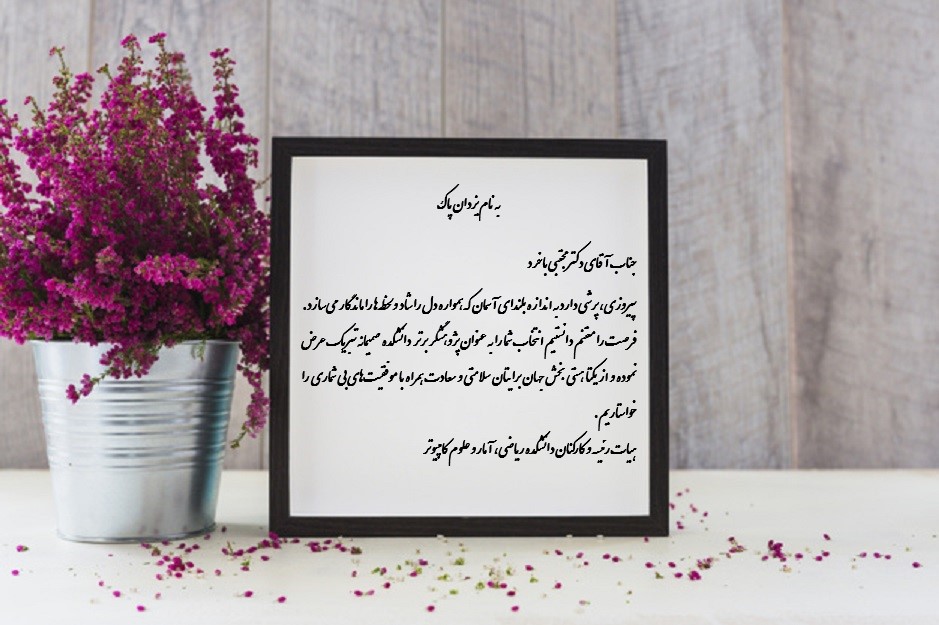 به نام یزدان پاک
جناب آقای دکتر مجتبی باخرد
پیروزی، پرشی دارد به اندازه بلندای آسمان که همواره دل را شاد و لحظه‌ها را ماندگار می سازد.
فرصت را مغتنم دانستیم انتخاب شما را به عنوان پژوهشگر برتر دانشکده صمیمانه تبریک عرض
نموده و از یکتا هستی بخش جهان برایتان سلامتی و سعادت بهمراه با موفقیت‌های بی شماری را
خواستاریم.
هیات رئیسه و کارکنان دانشکده ریاضی، آمار و علوم کامپیوتر